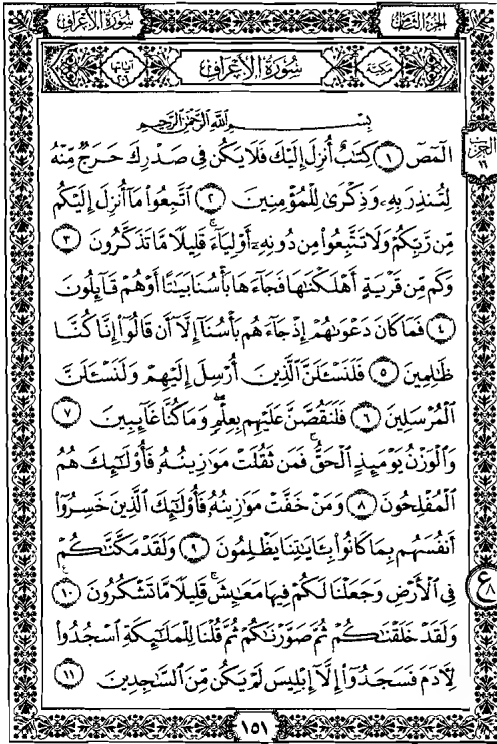 سُورَةُ الْأَعْرَافِ
الجزء الثامن
مكية
سُورَةُ الْأَعْرَافِ
آياتها
بِسْمِ اللَّهِ الرَّحْمَٰنِ الرَّحِيمِ
الحزب ١٦
الٓمٓصٓ ١ كِتَٰبٌ أُنزِلَ إِلَيْكَ فَلَا يَكُن فِى صَدْرِكَ حَرَجٌ مِّنْهُ
لِتُنذِرَ بِهِۦ وَذِكْرَىٰ لِلْمُؤْمِنِينَ ٢ ٱتَّبِعُوا۟ مَآ أُنزِلَ إِلَيْكُم
مِّن رَّبِّكُمْ وَلَا تَتَّبِعُوا۟ مِن دُونِهِۦٓ أَوْلِيَآءَ ۗ قَلِيلًا مَّا تَذَكَّرُونَ ٣
وَكَم مِّن قَرْيَةٍ أَهْلَكْنَٰهَا فَجَآءَهَا بَأْسُنَا بَيَٰتًا أَوْ هُمْ قَآئِلُونَ
٤ فَمَا كَانَ دَعْوَىٰهُمْ إِذْ جَآءَهُم بَأْسُنَآ إِلَّآ أَن قَالُوٓا۟ إِنَّا كُنَّا
ظَٰلِمِينَ ٥ فَلَنَسْـَٔلَنَّ ٱلَّذِينَ أُرْسِلَ إِلَيْهِمْ وَلَنَسْـَٔلَنَّ
ٱلْمُرْسَلِينَ ٦ فَلَنَقُصَّنَّ عَلَيْهِم بِعِلْمٍ ۖ وَمَا كُنَّا غَآئِبِينَ ٧
وَٱلْوَزْنُ يَوْمَئِذٍ ٱلْحَقُّ ۚ فَمَن ثَقُلَتْ مَوَٰزِينُهُۥ فَأُو۟لَٰٓئِكَ هُمُ
ٱلْمُفْلِحُونَ ٨ وَمَنْ خَفَّتْ مَوَٰزِينُهُۥ فَأُو۟لَٰٓئِكَ ٱلَّذِينَ خَسِرُوٓا۟
أَنفُسَهُم بِمَا كَانُوا۟ بِـَٔايَٰتِنَا يَظْلِمُونَ ٩ وَلَقَدْ مَكَّنَّٰكُمْ
فِى ٱلْأَرْضِ وَجَعَلْنَا لَكُمْ فِيهَا مَعَٰيِشَ ۗ قَلِيلًا مَّا تَشْكُرُونَ ١٠
وَلَقَدْ خَلَقْنَٰكُمْ ثُمَّ صَوَّرْنَٰكُمْ ثُمَّ قُلْنَا لِلْمَلَٰٓئِكَةِ ٱسْجُدُوا۟
لِـَٔادَمَ فَسَجَدُوٓا۟ إِلَّآ إِبْلِيسَ لَمْ يَكُن مِّنَ ٱلسَّٰجِدِينَ ١١
ع ٨
١٥١